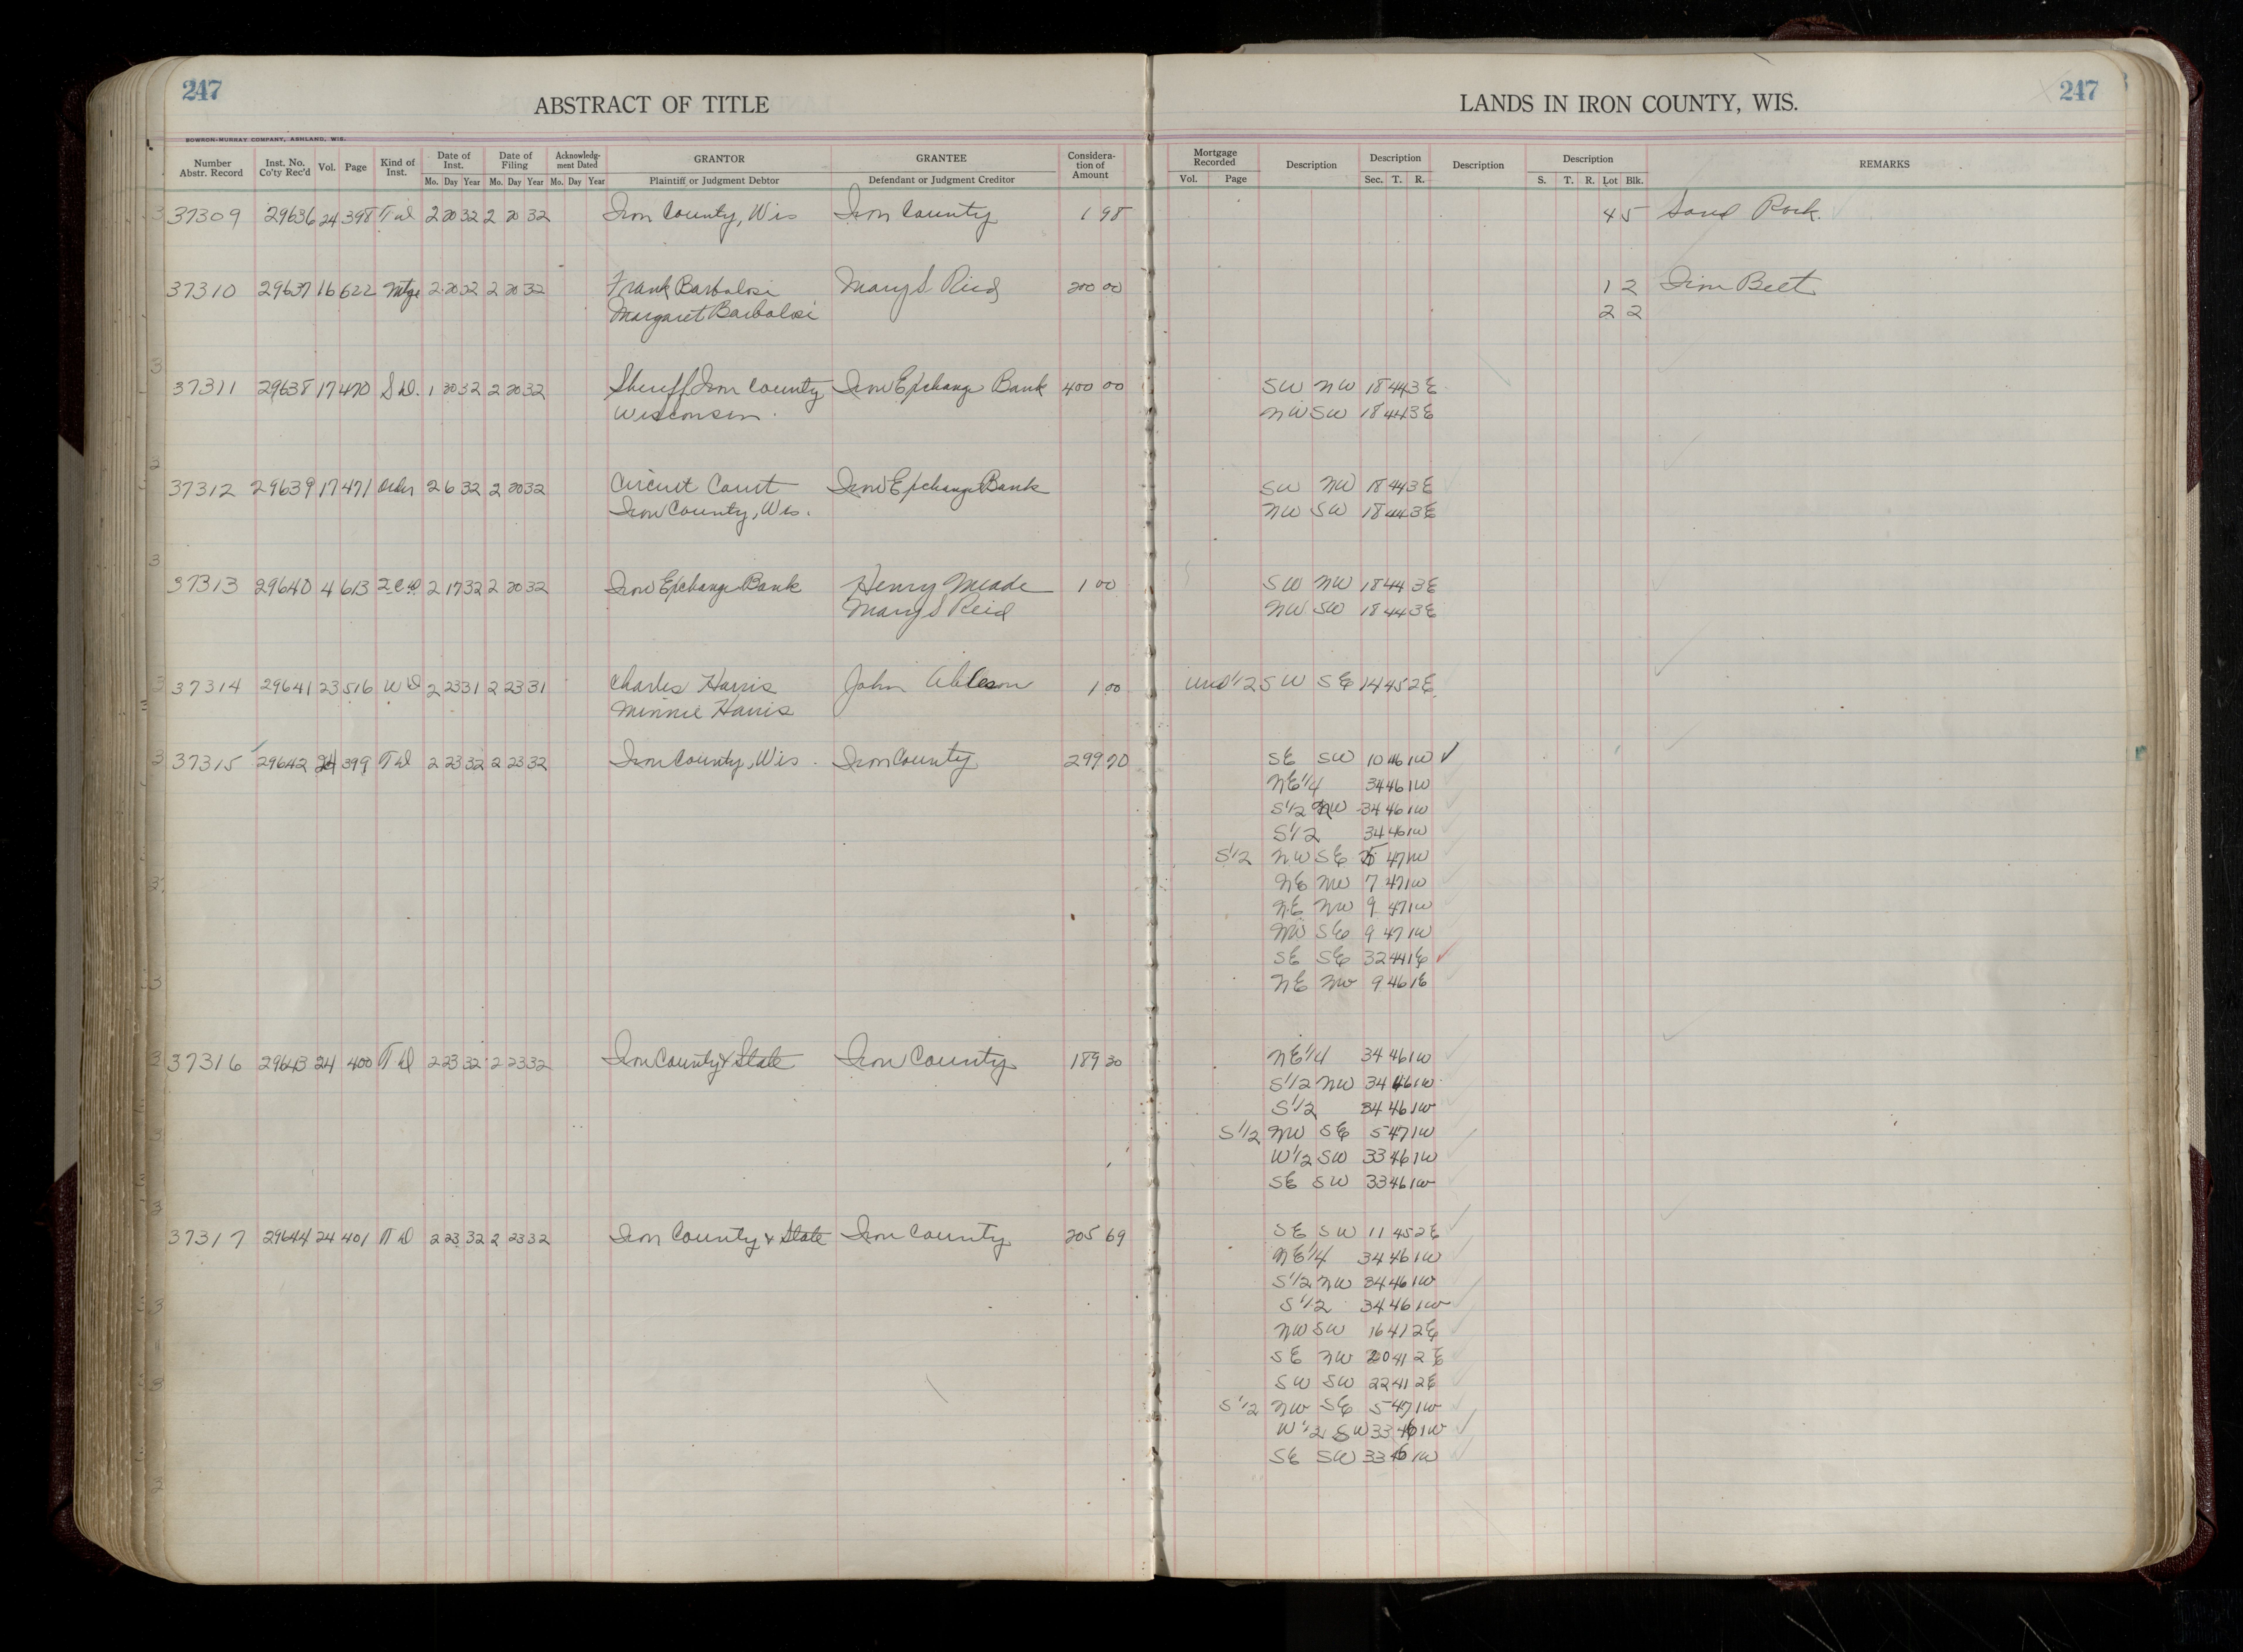 247
ABSTRACT OF TITLE
LANDS IN IRON COUNTY, WIS.
247
BOWRON-MURRAY COMPANY, ASHLAND, WIS.
Number Abstr. Record | Inst. No. Co'ty Rec'd | Vol. | Page | Kind of Inst. | Date of Inst. Mo. Day Year | Date of Filing Mo. Day Year | Acknowledg-ment Dated Mo. Day Year | GRANTOR Plaintiff or Judgment Debtor | GRANTEE Defendant or Judgment Creditor | Considera-tion of Amount | Mortgage Recorded Vol. Page | Description | Description Sec. T. R. | Description | Description S. T. R. Lot Blk. | REMARKS
37309 29636 24 398 T D 2 20 32 2 20 32 Iron County, Wis Iron County 1 98 4 5 Sand Rock.
37310 29637 16 622 Mtge 2 20 32 2 20 32 Frank Barbolosi Mary S Reid 200 00 1 2 Iron Belt
Margaret Barbalosi 2 2
37311 29638 17 470 S D. 1 30 32 2 20 32 Sheriff Iron County Iron Exchange Bank 400 00 SW NW 18 44 3E
Wisconsin. NW SW 18 44 3E
37312 29639 17 471 Order 2 6 32 2 20 32 Circuit Court Iron Exchange Bank SW NW 18 44 3E
Iron County, Wis. NW SW 18 44 3E
37313 29640 4 613 2CD 2 17 32 2 20 32 Iron Exchange Bank Henry Meade 1 00 SW NW 18 44 3E
Mary S Reid NW SW 18 44 3E
37314 29641 23 516 W D 2 23 31 2 23 31 Charles Harris John 1 00 Und 1/2 SW SE 14 45 2E
Minnie Harris
37315 29642 24 399 T D 2 23 32 2 23 32 Iron County, Wis. Iron County 299 70 SE SW 10 46 1W ✓
NE 1/4 34 46 1W
S 1/2 NW 34 46 1W
S 1/2 34 46 1W
S 1/2 NW SE 5 47 1W
NE NW 7 47 1W
NE NW 9 47 1W
NW SE 9 47 1W
SE SE 32 44 1E ✓
NE NW 9 46 1E
37316 29643 24 400 T D 2 23 32 2 23 32 Iron County & State Iron County 189 30 NE 1/4 34 46 1W
S 1/2 NW 34 46 1W
S 1/2 34 46 1W
S 1/2 NW SE 5 47 1W
W 1/2 SW 33 46 1W
SE SW 33 46 1W
37317 29644 24 401 T D 2 23 32 2 23 32 Iron County & State Iron County 205 69 SE SW 11 45 2E
NE 1/4 34 46 1W
S 1/2 NW 34 46 1W
S 1/2 34 46 1W
NW SW 16 41 2E
SE NW 20 41 2E
SW SW 22 41 2E
S 1/2 NW SE 5 47 1W
W 1/2 SW 33 46 1W
SE SW 33 46 1W